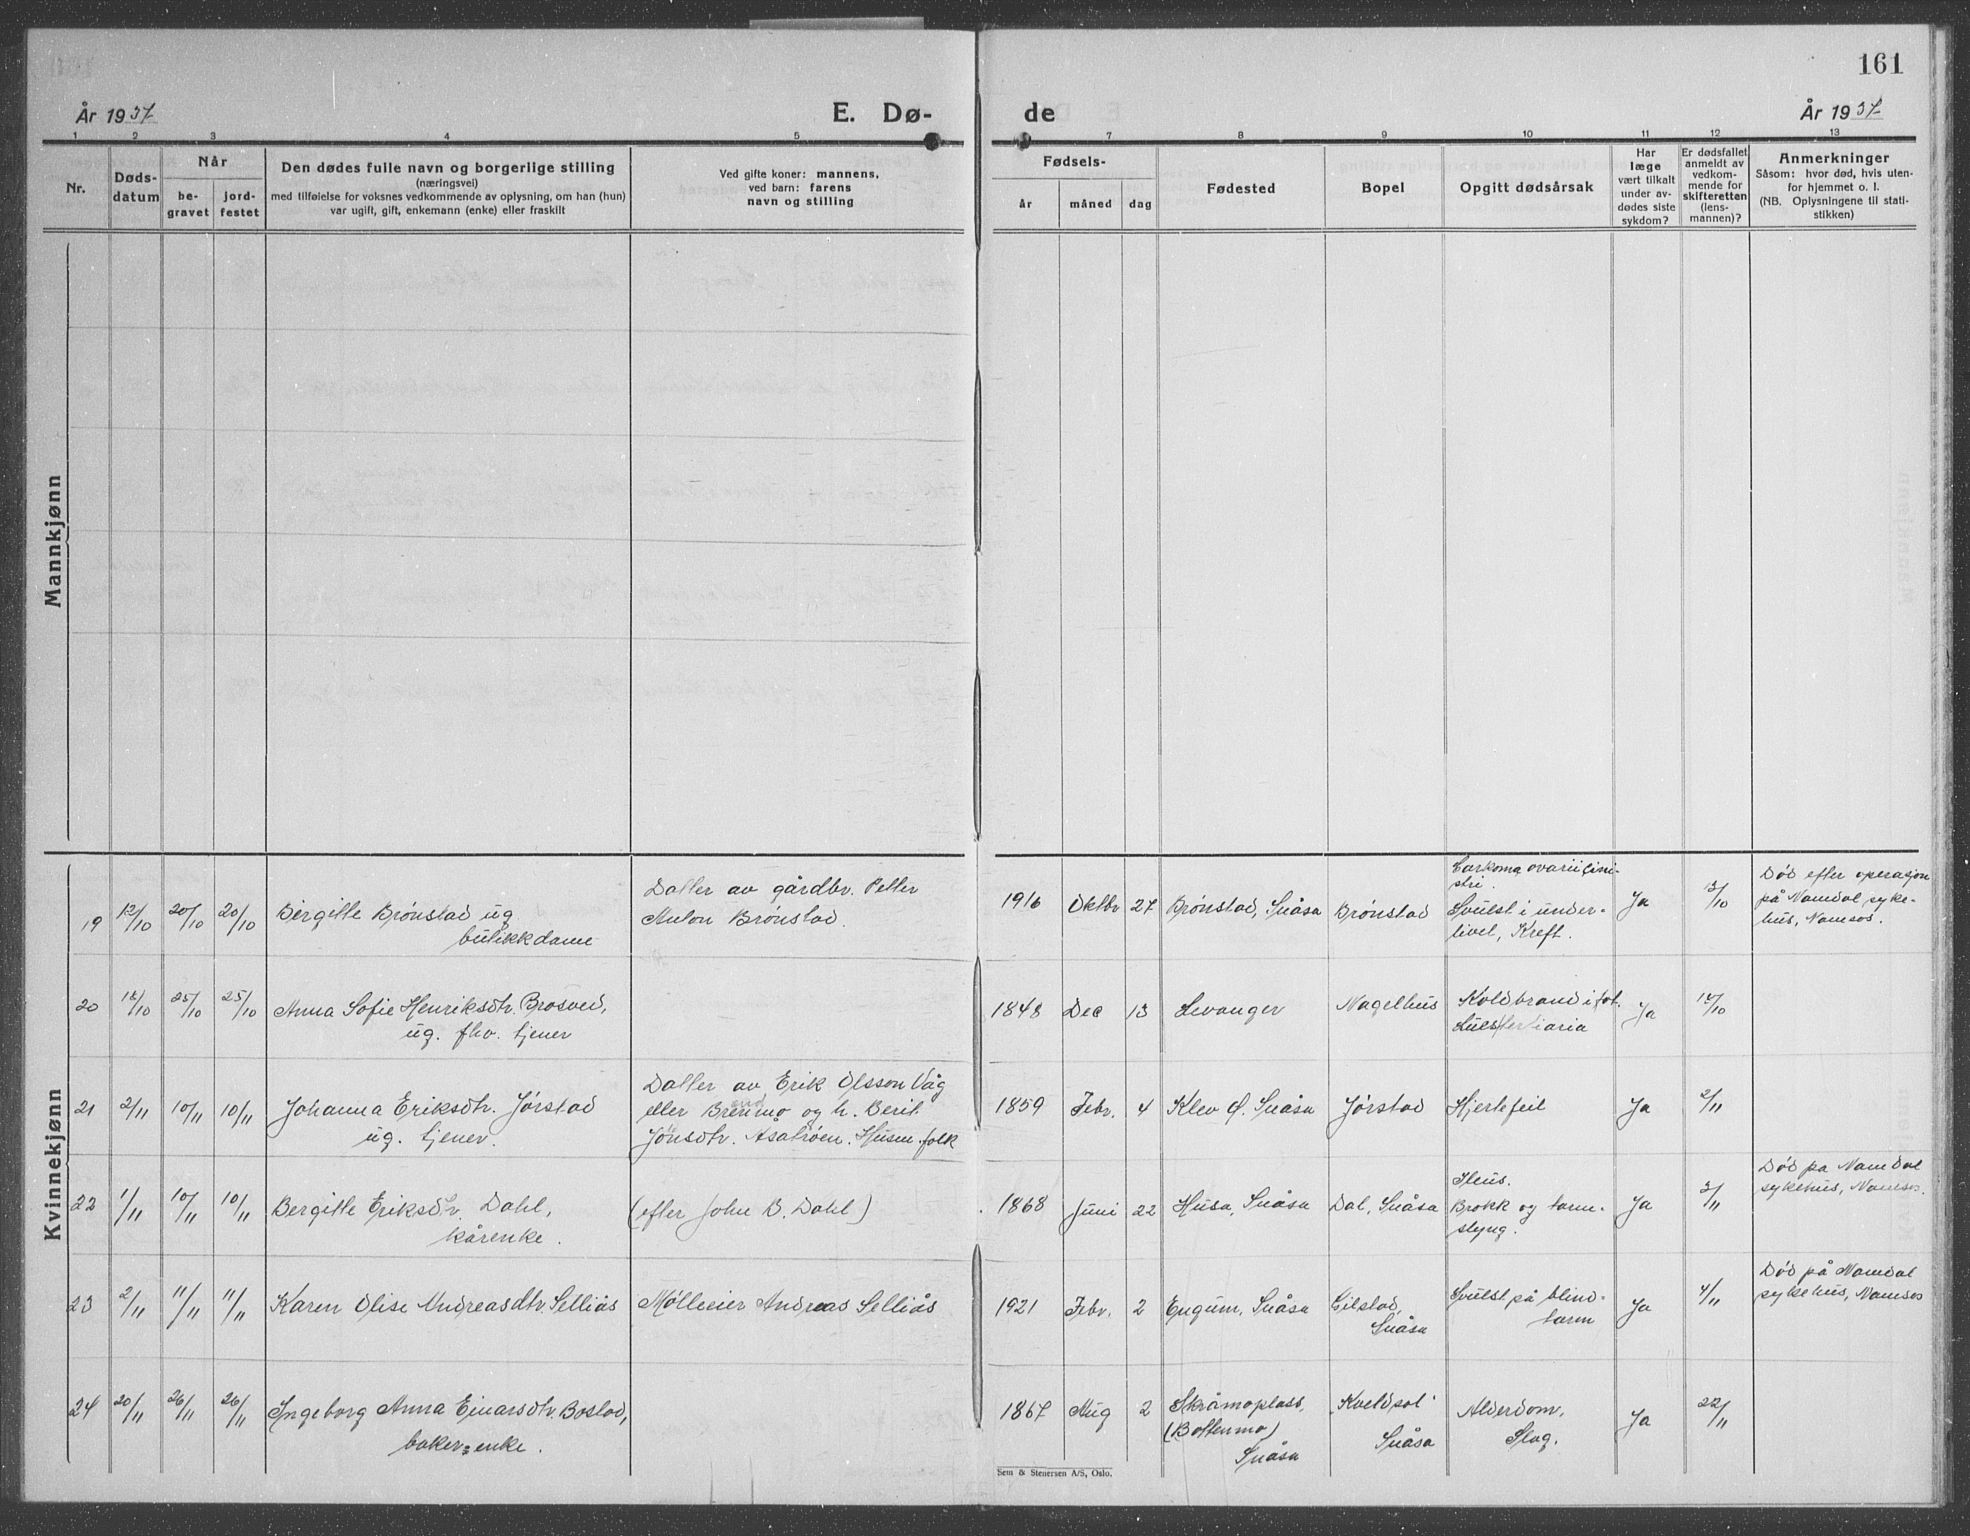 161
År 1937
E. Dø-
de
År 1937
1 2 3 4 5 7 8 9 10 11 12 13
Nr.
Døds-
datum
Når
be-
gravet
jord-
festet
Den dødes fulle navn og borgerlige stilling
(næringsvei)
med tilføielse for voksnes vedkommende av oplysning, om han (hun)
var ugift, gift, enkemann (enke) eller fraskilt
Ved gifte koner: mannens,
ved barn: farens
navn og stilling
Fødsels-
år måned dag
Fødested
Bopel
Opgitt dødsårsak
Har
læge
vært tilkalt
under av-
dødes siste
sykdom?
Er dødsfallet
anmeldt av
vedkom-
mende for
skifteretten
(lens-
mannen)?
Anmerkninger
Såsom: hvor død, hvis uten-
for hjemmet o. l.
(NB. Oplysningene til stati-
stikken)
Mannkjønn
Kvinnekjønn
19 12/10 20/10 20/10
Birgitte Brønstad ug
butikkdame
Datter av gårdbr. Petter
Anton Brønstad.
1916 Oktbr 27 Brønstad, Snåsa Brønstad
Sarkoma ovarii sini-
stri.
Svulst i under-
livet, Kreft.
Ja 13/10
Død efter operasjon
på Namdal syke-
hus, Namsos.
20 18/10 25/10 25/10
Anna Sofie Henriksdtr. Brosved,
ug. fhv. tjener
1848 Dec 13 Levanger Nagelhus
Koldbrand i fot.
Lues tertiaria
Ja /10
21 2/11 10/11 10/11
Johanna Eriksdtr. Jørstad
ug. tjener.
Datter av Erik Olsson Våg
eller Bremmo og h. Berit
Jonsdtr. Åsatrøen. Husm.folk
1859 Febr. 4 Klev Ø. Snåsa Jørstad Hjertefeil Ja 2/11
22 1/11 10/11 10/11
Bergitte Eriksdtr. Dahl,
kårenke.
(efter John B. Dahl)
1868 Juni 22 Husa, Snåsa Dal, Snåsa
Ileus.
Brokk og tarm-
slyng.
Ja 3/11
Død på Namdal
sykehus, Namsos.
23 2/11 11/11 11/11
Karen Olise Andreasdtr. Selliås
Møllerier Andreas Selliås
1921 Febr. 2 Engum, Snåsa
Gilstad,
Snåsa
Svulst på blind-
tarm
Ja 4/11
Død på Namdal
sykehus, Namsos
24 20/11 26/11 26/11
Ingeborg Anna Einarsdtr. Bostad,
baker-enke.
1867 Aug 2
Skråmoplass,
(Bottenmo)
Snåsa
"Kveldsol"
Snåsa
Alderdom,
Slag.
Ja 22/11
Sem & Stenersen A/S, Oslo.